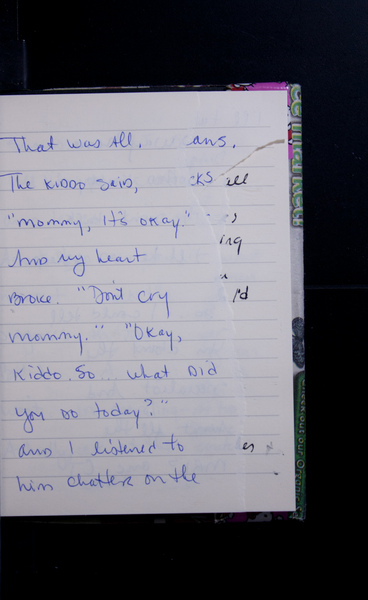 That was all. ans.
The kiddo said, cks ell
"mommy, it's okay."
And my heart ing
Broke. "Don't cry rd
mommy." "Okay,
Kiddo. So... what DID
you do today?"
and I listened to es
him chatter on the